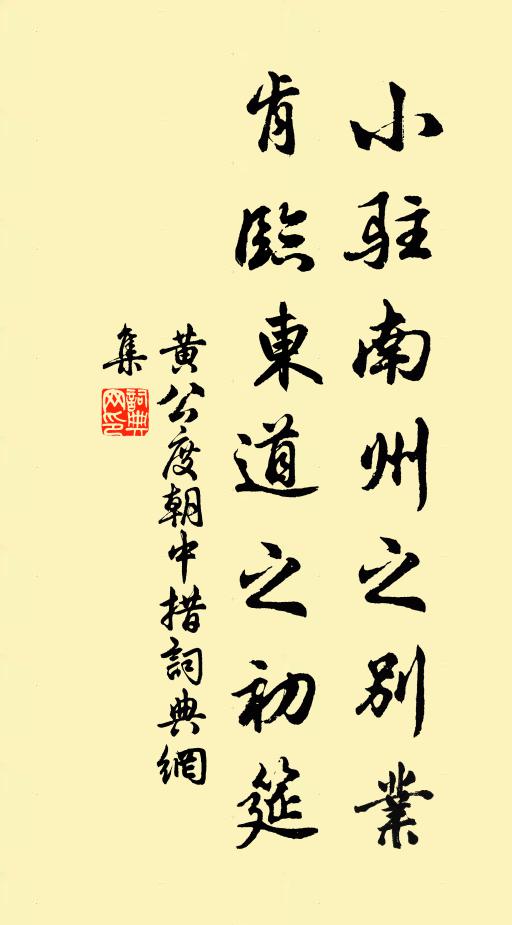 小駐南州之別業
肯臨東道之初筵
黃公度朝中措詞典網
集
詞典網印